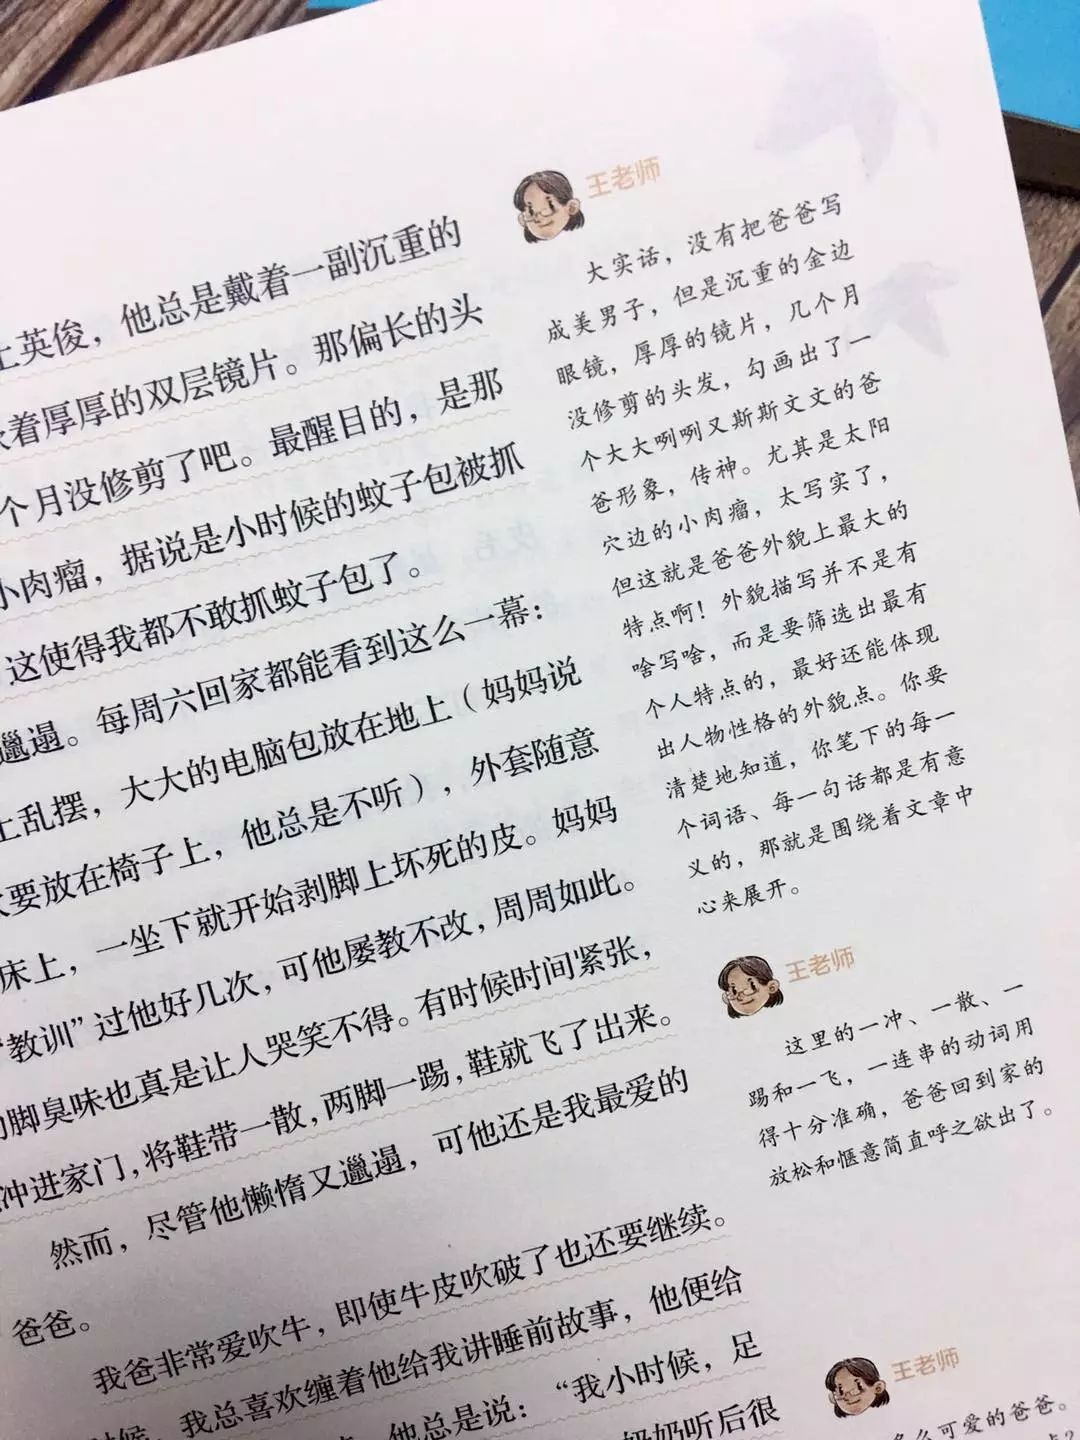 上英俊，他总是戴着一副沉重的
着厚厚的双层镜片。那偏长的头
个月没修剪了吧。最醒目的，是那
小肉瘤，据说是小时候的蚊子包被抓
这使得我都不敢抓蚊子包了。
邋遢。每周六回家都能看到这么一幕：
上乱摆，大大的电脑包放在地上（妈妈说
要放在椅子上，他总是不听），外套随意
床上，一坐下就开始剥脚上坏死的皮。妈妈
“教训”过他好几次，可他屡教不改，周周如此。
脚臭味也真是让人哭笑不得。有时候时间紧张，
冲进家门，将鞋带一散，两脚一踢，鞋就飞了出来。
然而，尽管他懒惰又邋遢，可他还是我最爱的
爸爸。
我爸非常爱吹牛，即使牛皮吹破了也还要继续。
时候，我总喜欢缠着他给我讲睡前故事，他便给
他总是说：“我小时候，足
奶奶听后很
王老师
大实话，没有把爸爸写
成美男子，但是沉重的金边
眼镜，厚厚的镜片，几个月
没修剪的头发，勾画出了一
个大大咧咧又斯斯文文的爸
爸形象，传神。尤其是太阳
穴边的小肉瘤，太写实了，
但这就是爸爸外貌上最大的
特点啊！外貌描写并不是有
啥写啥，而是要筛选出最有
个人特点的，最好还能体现
出人物性格的外貌点。你要
清楚地知道，你笔下的每一
个词语、每一句话都是有意
义的，那就是围绕着文章中
心来展开。
王老师
这里的一冲、一散、一
踢和一飞，一连串的动词用
得十分准确，爸爸回到家的
放松和惬意简直呼之欲出了。
王老师
多么可爱的爸爸。